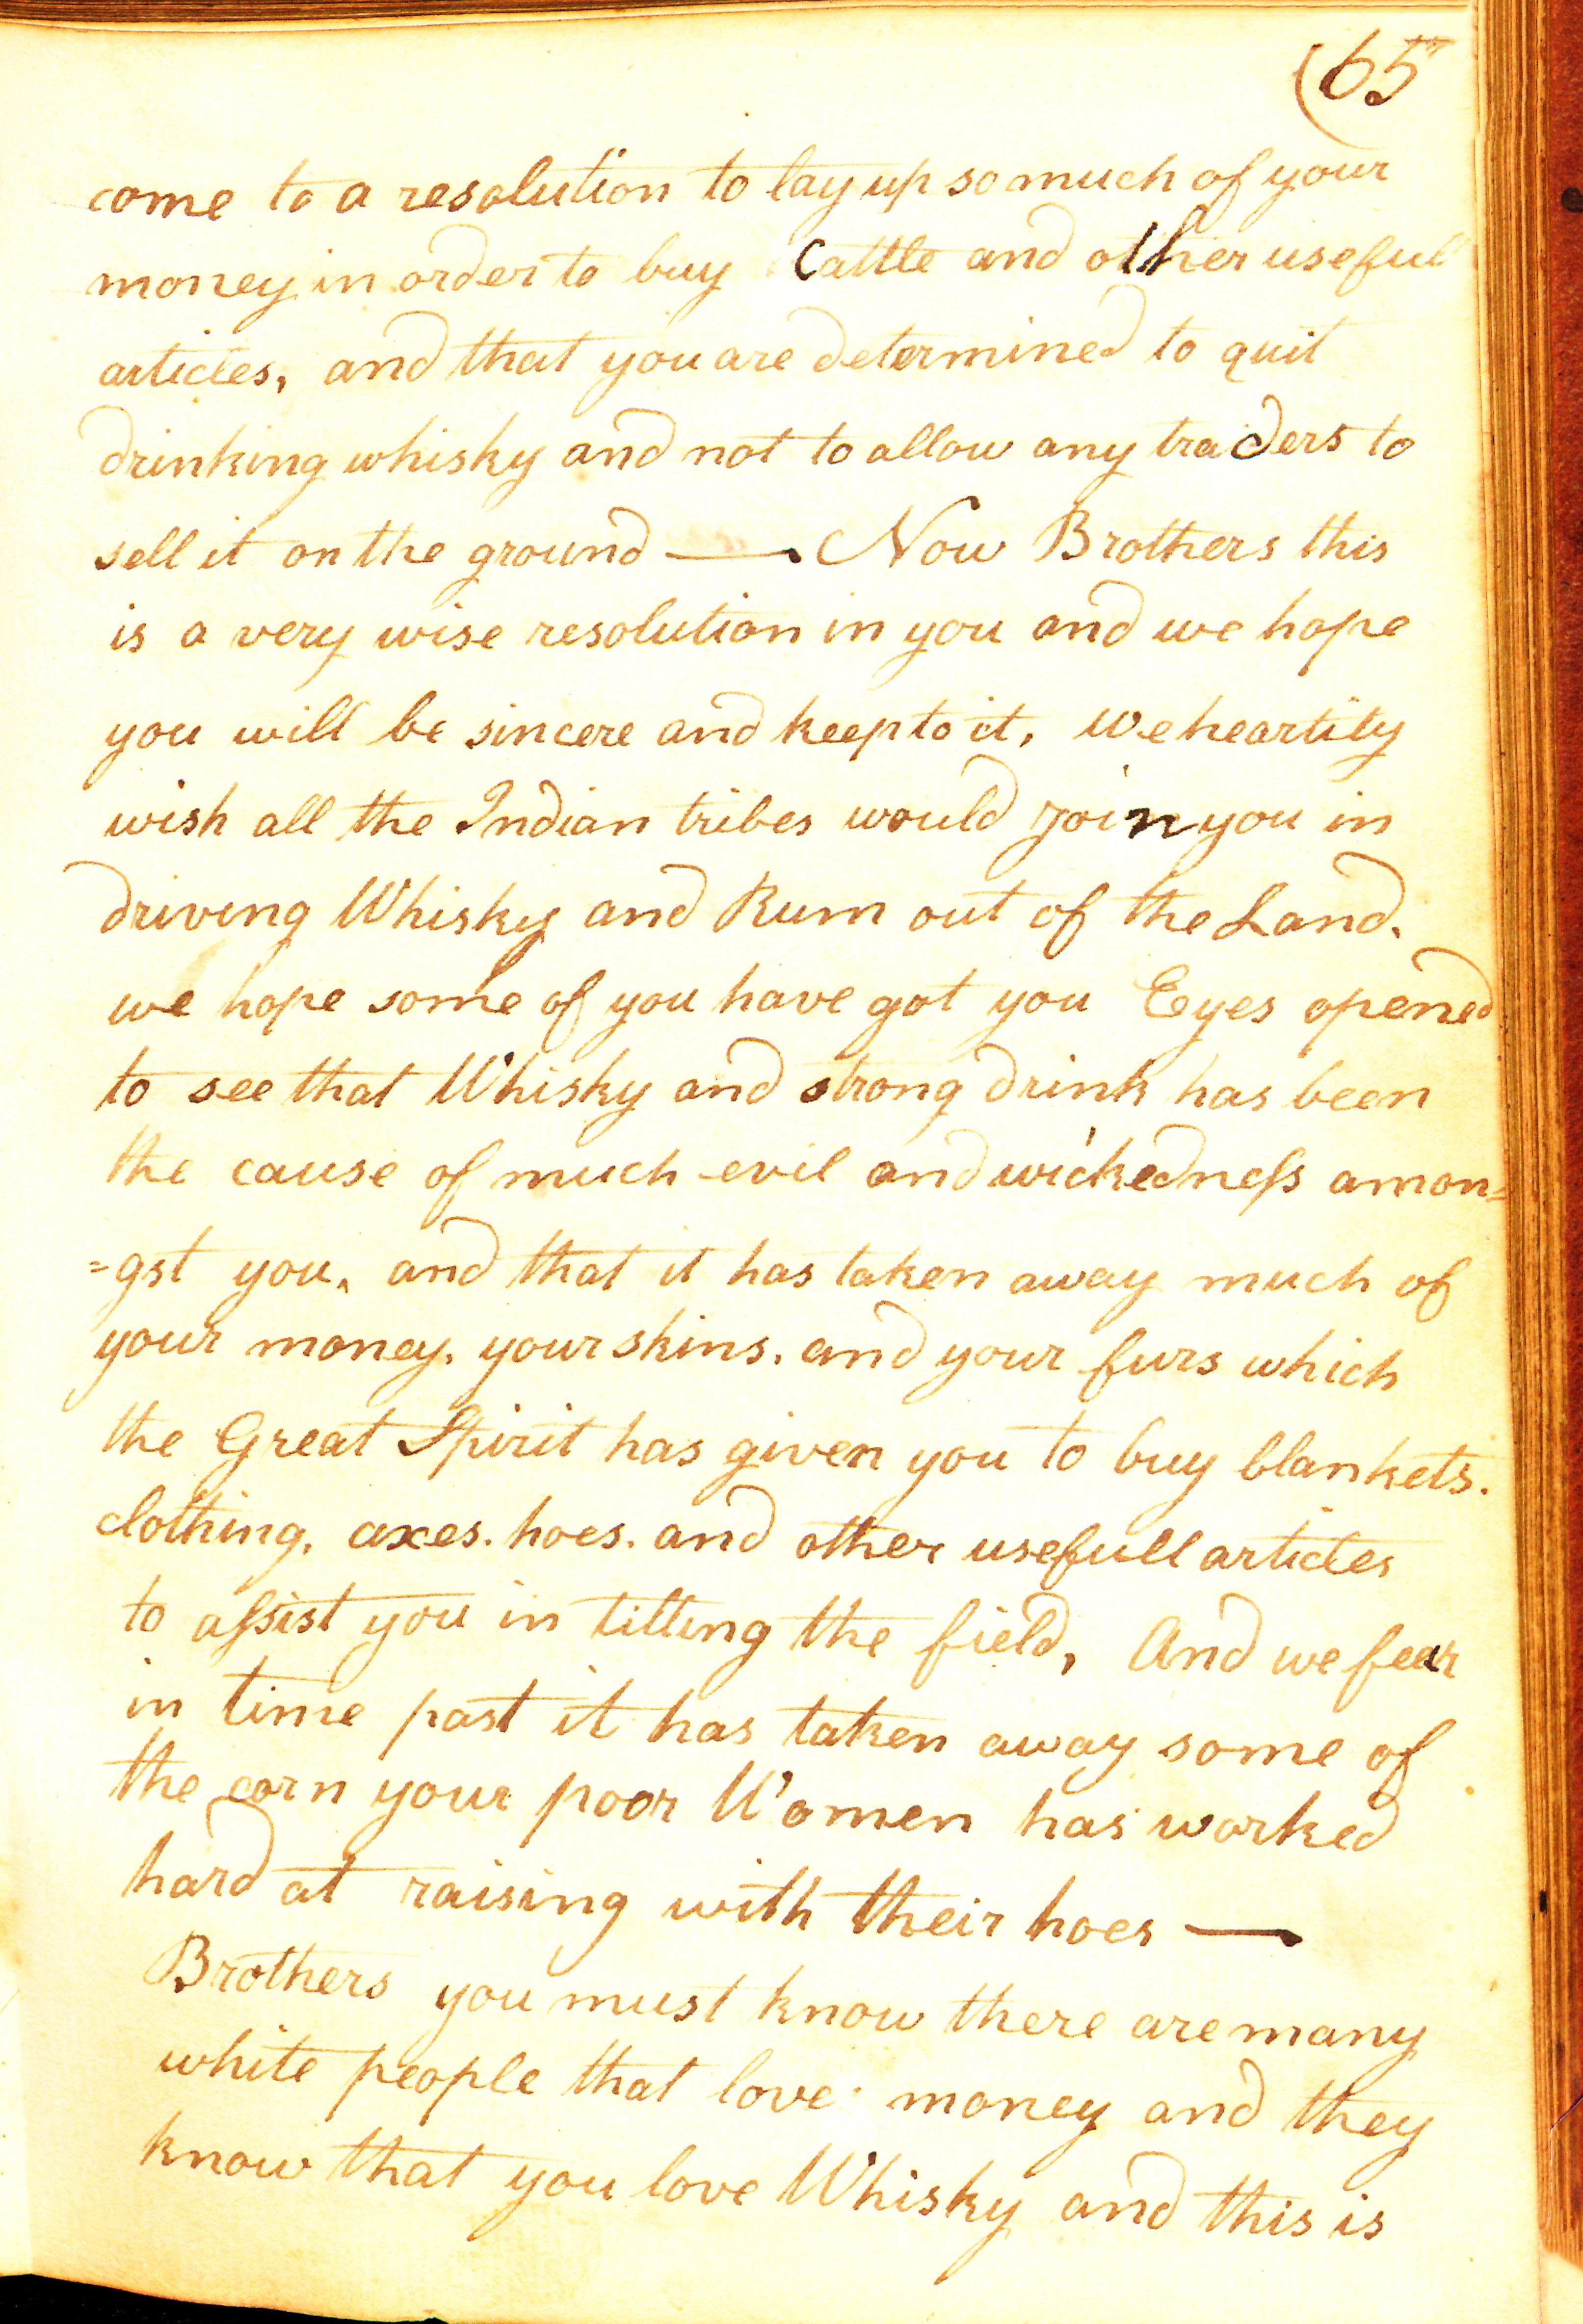 (65
come to a resolution to lay up so much of your
money in order to buy Cattle and other useful
articles, and that you are determined to quit
drinking whisky and not to allow any traders to
sell it on the ground — Now Brothers this
is a very wise resolution in you and we hope
you will be sincere and keep to it, we heartily
wish all the Indian tribes would join you in
driving Whisky and Rum out of the Land.
we hope some of you have got you Eyes opened
to see that Whisky and strong drink has been
the cause of much evil and wickedneſs amon=
=gst you, and that it has taken away much of
your money, your skins, and your furs which
the Great Spirit has given you to buy blankets.
clothing, axes. hoes. and other usefull articles
to aſsist you in tilling the field, And we fear
in time past it has taken away some of
the corn your poor Women has worked
hard at raising with their hoes —
Brothers you must know there are many
white people that love money and they
know that you love Whisky and this is